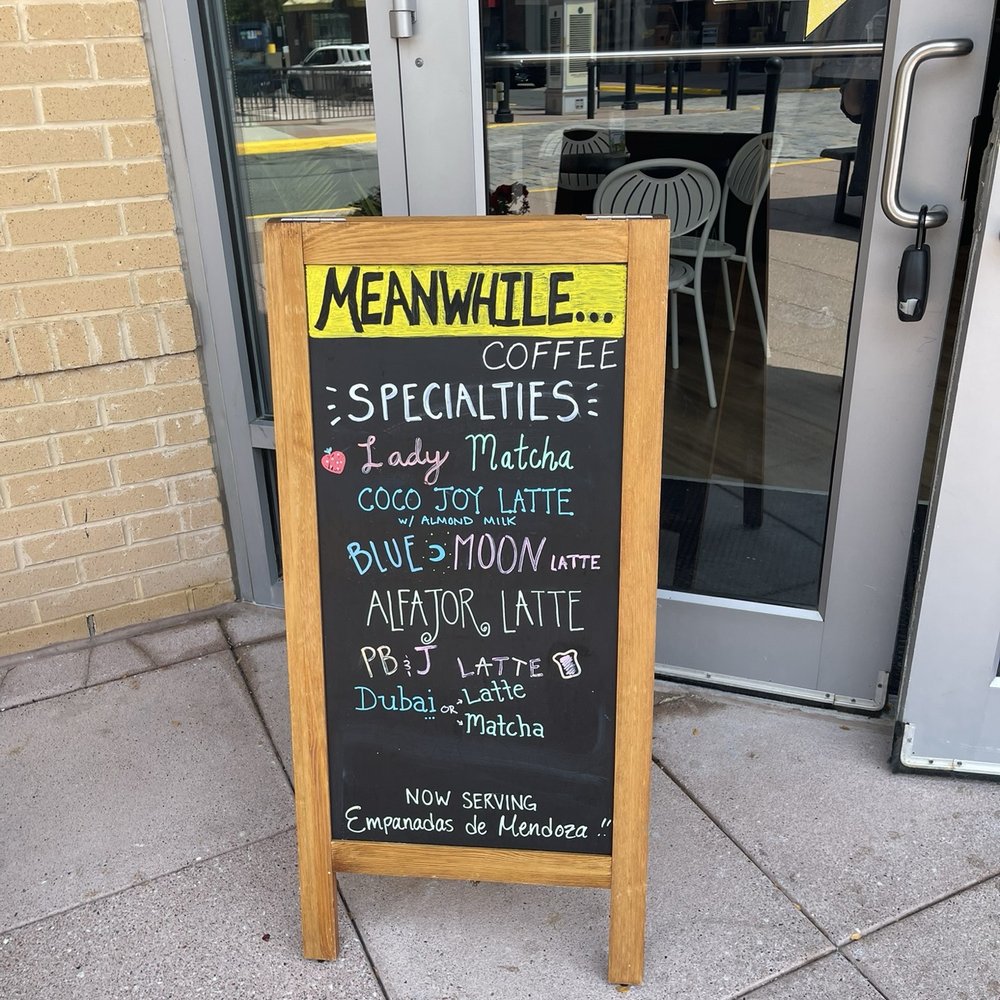 MEANWHILE...
COFFEE
SPECIALTIES
Lady Matcha
COCO JOY LATTE
W/ ALMOND MILK
BLUE MOON LATTE
ALFAJOR LATTE
PB & J LATTE
Dubai OR Latte
Matcha
NOW SERVING
Empanadas de Mendoza !!